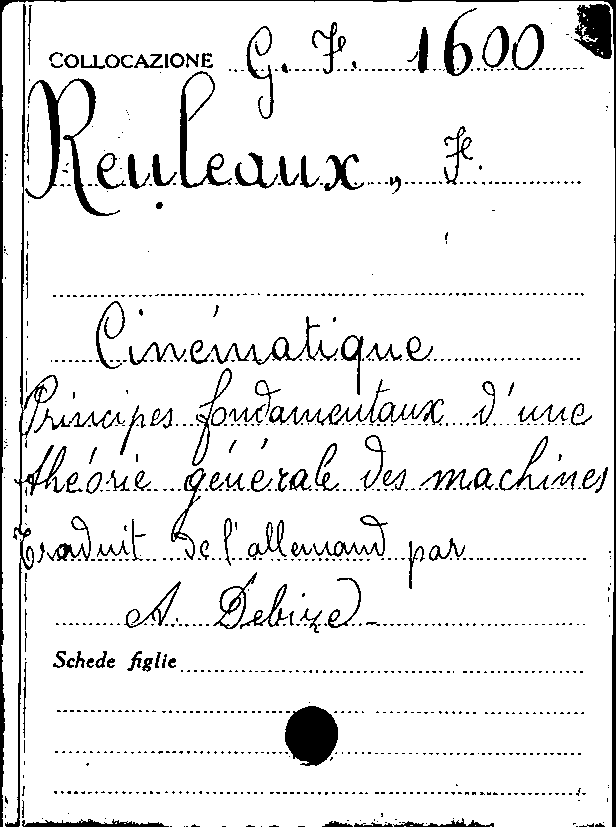 COLLOCAZIONE G. F. 1600
Reuleaux, F.
Cinématique
Principes fondamentaux d'une
théorie générale des machines
Traduit de l'allemand par
A. Debize
Schede figlie